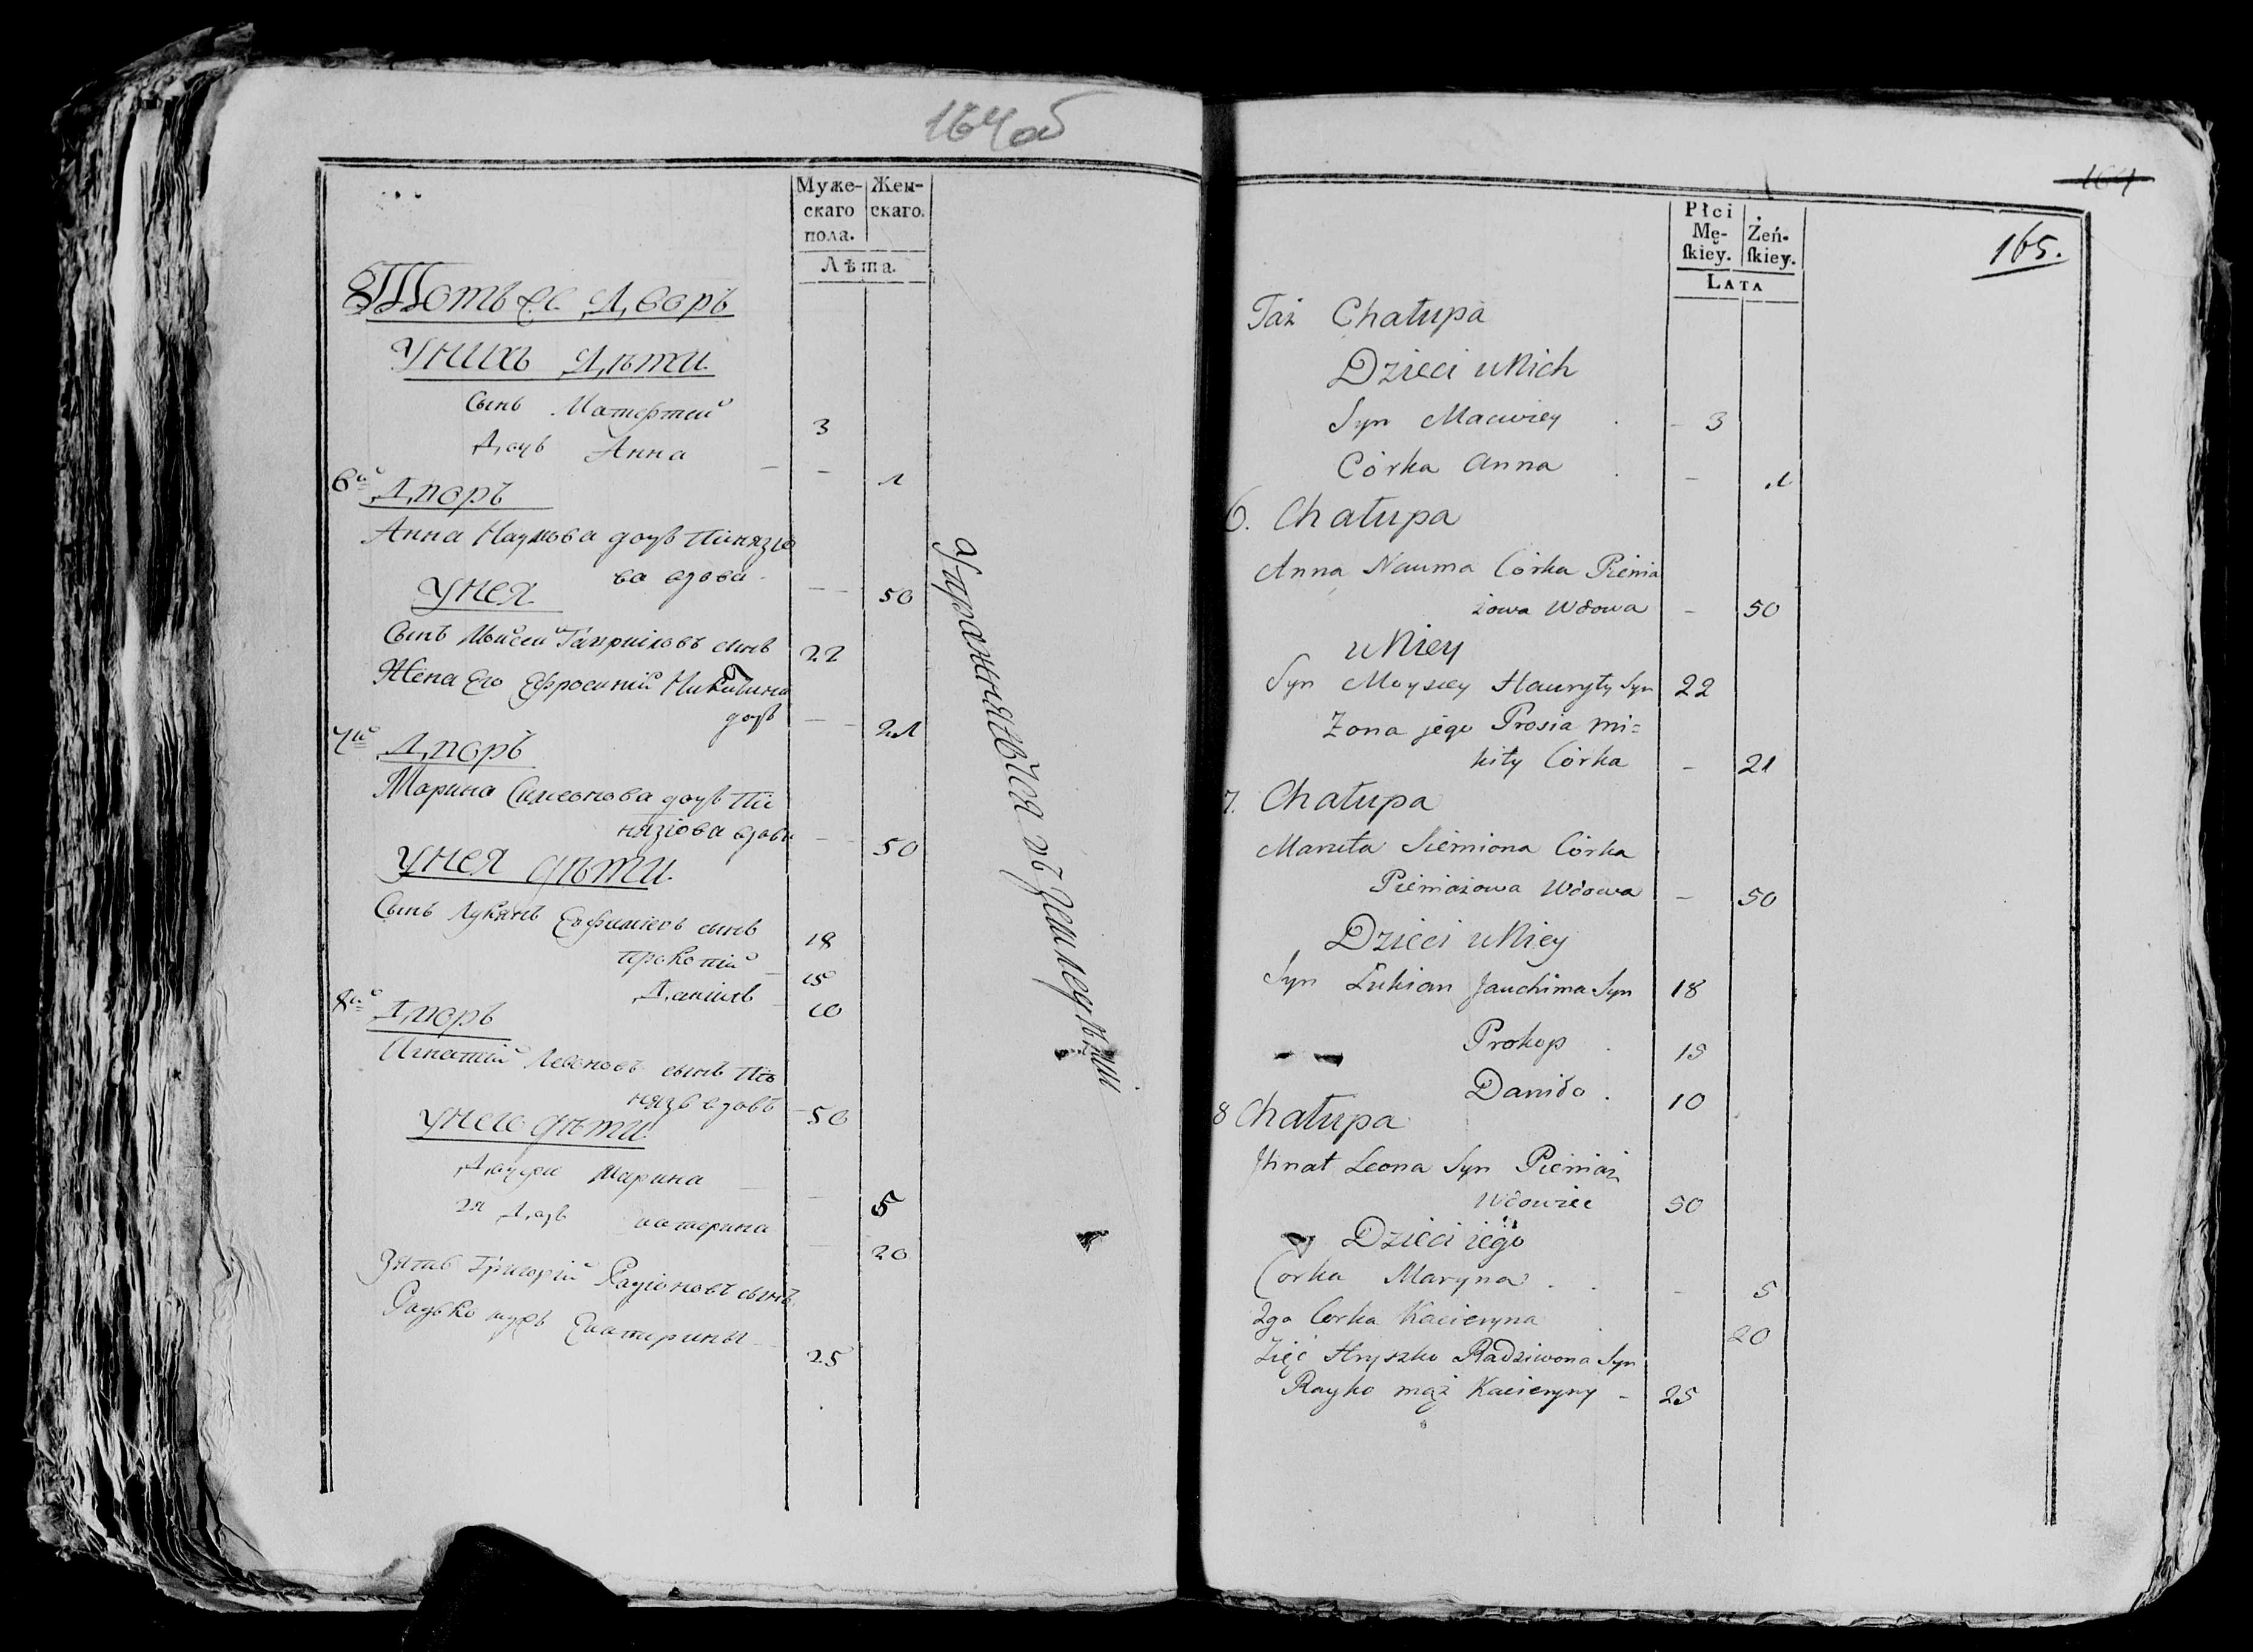 164об
Муже- Жен-
скаго скаго.
пола.
Лѣта.
Тотъ же Дворъ
У нихъ Дѣти
Сынъ Матфтей 3
Дочь Анна — — 1
6й Дворъ
Анна Наумова дочь Пѣнязіо
ва вдова — 50
У нея
Сынъ Мойсей Гавриловъ сынъ 22
Жена Его Ефросинiй Никитина
дочь — 21
7й Дворъ
Марина Симеонова дочь Пѣ
нязіова вдова — 50
У нея дѣти
Сынъ Лукянъ Евфимiовъ сынъ 18
Прокопiй 15
Данiилъ 10
8й Дворъ
Игнатiй Леоновъ сынъ Пѣ
нязь вдовъ 50
У него дѣти
Дочери Марина — — 5
2я Дочь катерина — 20
Зять Григорiй Радiоновъ сынъ
мужъ Екатерины 25
упражняется въ земледѣлiи
164
165.
Płci Żeń-
Mę- ſkiey.
ſkiey.
LATA
Taż Chałupa
Dzieci u Nich
Syn Maciwiey . – 3
Córka Anna . – 1
6. Chałupa
Anna Nauma Córka Pienia
żowa Wdowa – 50
u Niey
Syn Moysiey Hawryły Syn 22
Żona jego Prosia Mi=
kity Córka – 21
7. Chałupa
Maruta Siemiona Córka
Pieniażowa Wdowa – 50
Dzieci u Niey
Syn Łukian Jauchima Syn 18
Prokop . 15
Daniło . 10
8 Chałupa
Ihnat Leona Syn Pieniaż
Wdowiec 50
Dzieci iego
Corka Maryna . . – 5
2ga Corka Kacieryna . 20
Zięć Hryszko Radziwona Syn
Rayko mąż Kacieryny – 25